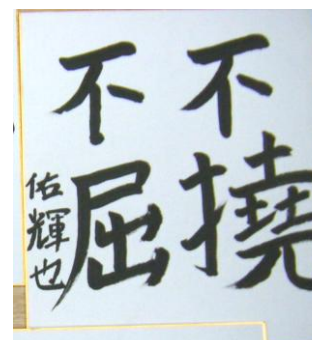 不撓
不屈
佑輝也